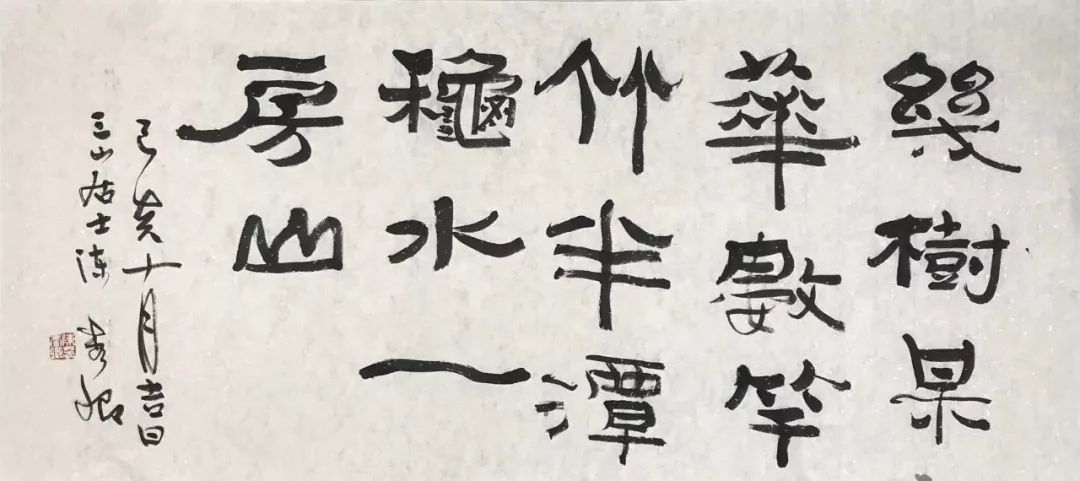 幾樹杲
華數竿
竹半潭
龝水一
房山
己亥十月吉日
三山居士陈